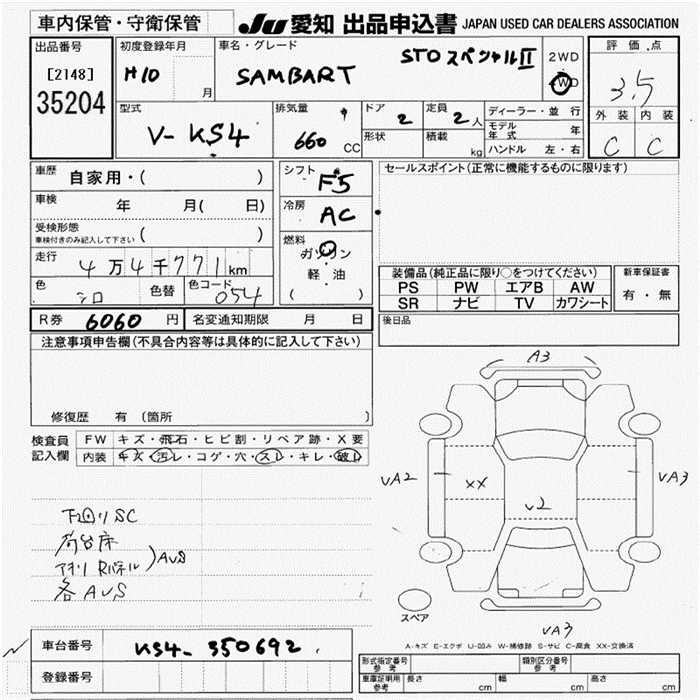 車内保管・守衛保管
JU 愛知 出品申込書 JAPAN USED CAR DEALERS ASSOCIATION
出品番号
[2148]
35204
初度登録年月
H10
月
車名・グレード
SAMBART
STD スペシャルⅡ
2WD
4WD
評価点
3.5
外装 内装
C C
型式
V-KS4
排気量
660 CC
ドア
2
定員
2人
形状
積載
kg
ディーラー・並行
モデル年式 年
ハンドル 左・右
車歴 自家用・( )
車検 年 月( 日)
受検形態
車検付きのみ記入して下さい ( )
走行 4万4千771km
色 シロ 色替 色コード 054
シフト F5
冷房 AC
燃料
ガソリン
・
軽油
( )
セールスポイント(正常に機能するものに限ります)
装備品(純正品に限り○をつけてください)
PS PW エアB AW
SR ナビ TV カワシート
新車保証書
有・無
R券 6060円 名変通知期限 月 日
後日品
注意事項申告欄(不具合内容等は具体的に記入して下さい)
修復歴 有 (箇所 )
検査員記入欄
FW キズ・飛石・ヒビ割・リペア跡・X要
内装 キズ・汚レ・コゲ・穴・スレ・キレ・破レ
下回りSC
荷台床
アオリ Rパネル ) AUS
各AUS
A3
VA2
XX
V2
VA3
VA3
スペア
A-キズ E-エクボ U-凹み W-補修跡 S-サビ C-腐食 XX-交換済
車台番号 KS4-350692
登録番号
形式指定番号 参考
類別区分番号 参考
車庫証明用 参考 長さ cm 幅 cm 高さ cm